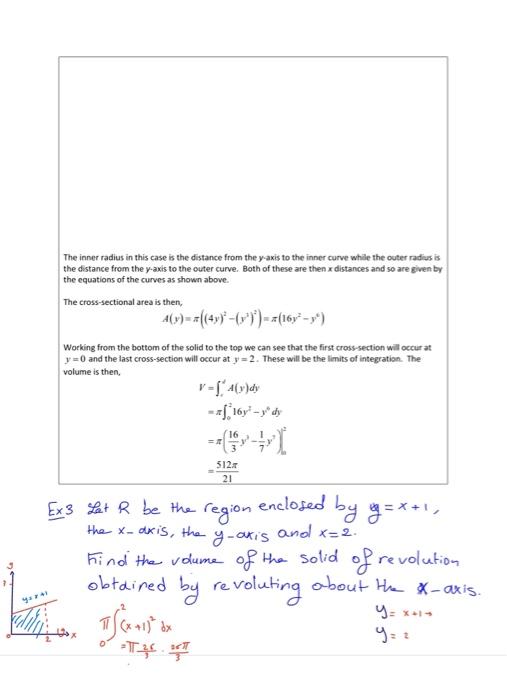 The inner radius in this case is the distance from the y-axis to the inner curve while the outer radius is
the distance from the y-axis to the outer curve. Both of these are then x distances and so are given by
the equations of the curves as shown above.
The cross-sectional area is then,
A(y) = π((4y)² − (y³)²) = π(16y² − y⁶)
Working from the bottom of the solid to the top we can see that the first cross-section will occur at
y = 0 and the last cross-section will occur at y = 2. These will be the limits of integration. The
volume is then,
V = ∫_c^d A(y)dy
= π∫_0^2 16y² − y⁶ dy
= π(16/3 y³ − 1/7 y⁷)|_0^2
= 512π/21
Ex3 Let R be the region enclosed by y = x+1,
the x-axis, the y-axis and x=2.
Find the volume of the solid of revolution
obtained by revoluting about the x-axis.
y = x+1
2 x
π∫_0^2 (x+1)² dx
= π 26/3 . 26π/3
y = x+1 →
y = 2